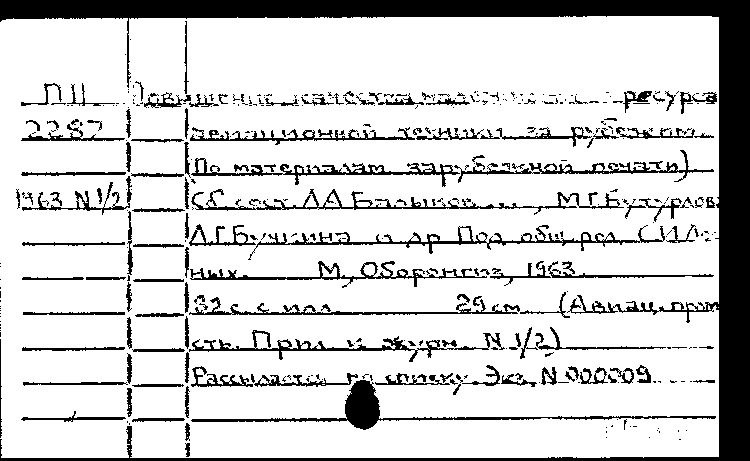 П11 Повышение качества, надежности и ресурса
2287 авиационной техники за рубежом.
(По материалам зарубежной печати)
1963 N 1/2 Сб. сост. Л.А. , М.Г. Бутурлова
Л.Г. Бучкина и др. Под общ. ред. С.И.
ных. М., Оборонгиз, 1963.
32 с. с илл. 29 см. (Авиац. пром
сть. Прил. к журн. N 1/2)
Рассылается по списку. Экз. N 000009